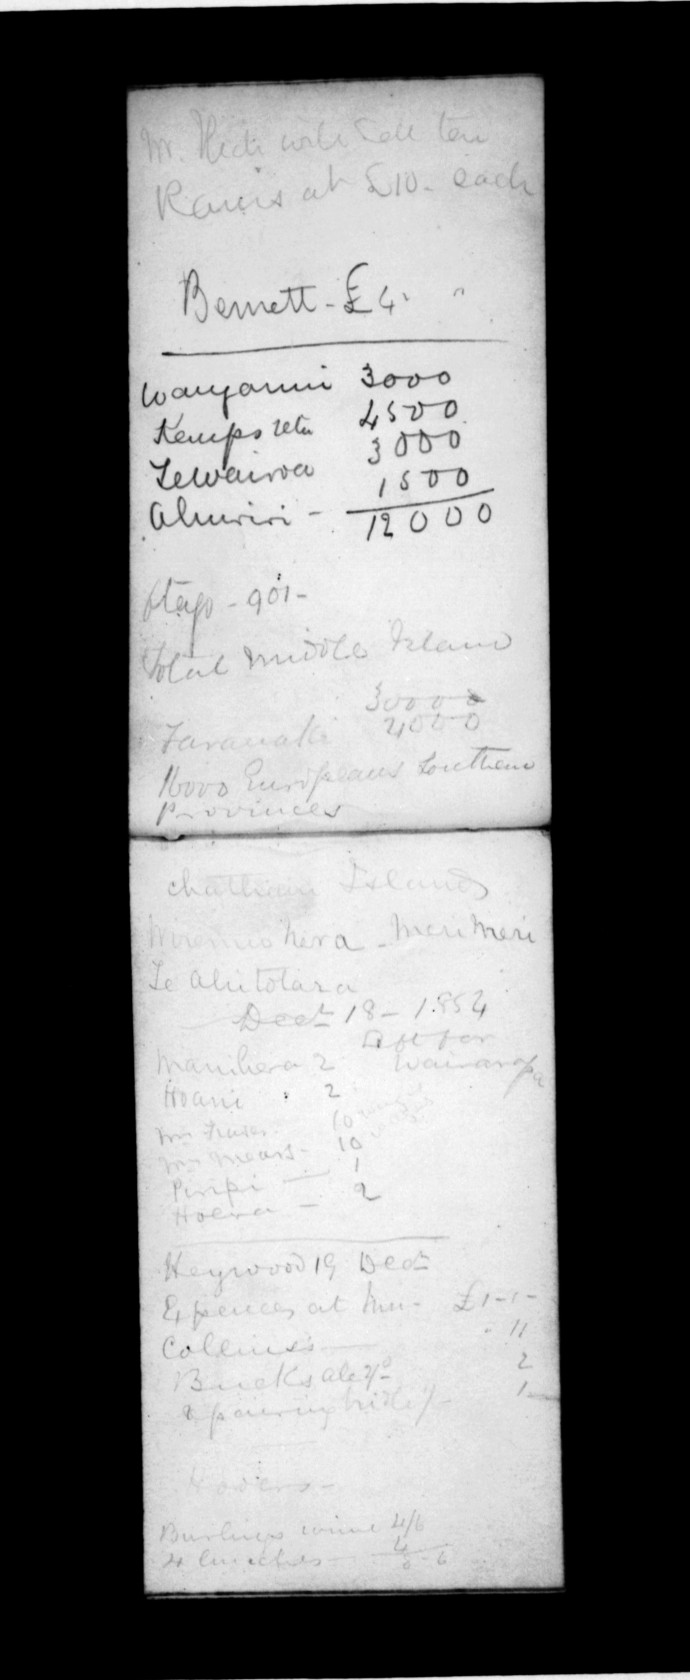 Mr. will sell ten
Rams at £10- each
Bennett - £4. "
Wanganui 3000
Kemps 4500
Te Wairoa 3000
Ahuriri - 1500
12000
Otago - 901-
Total Middle Island
30000
Taranaki 4000
16000 Europeans Southern
Provinces
Chatham Islands
Wiremu hera - Meri Meri
Te Ahitotara
Decr 18 - 1854
Left for
Manihera 2 Wairarapa
Hoani 2
Mr Fraser 10
Mr Mears - 10
Piripi — 1
Hoera — 2
Heywood 19 Decr
Expences at £1-1-
Collins's — 11
Bucks ale 2
bridle 1
Burlings wine 4/6
4 lunches — 4
8-6